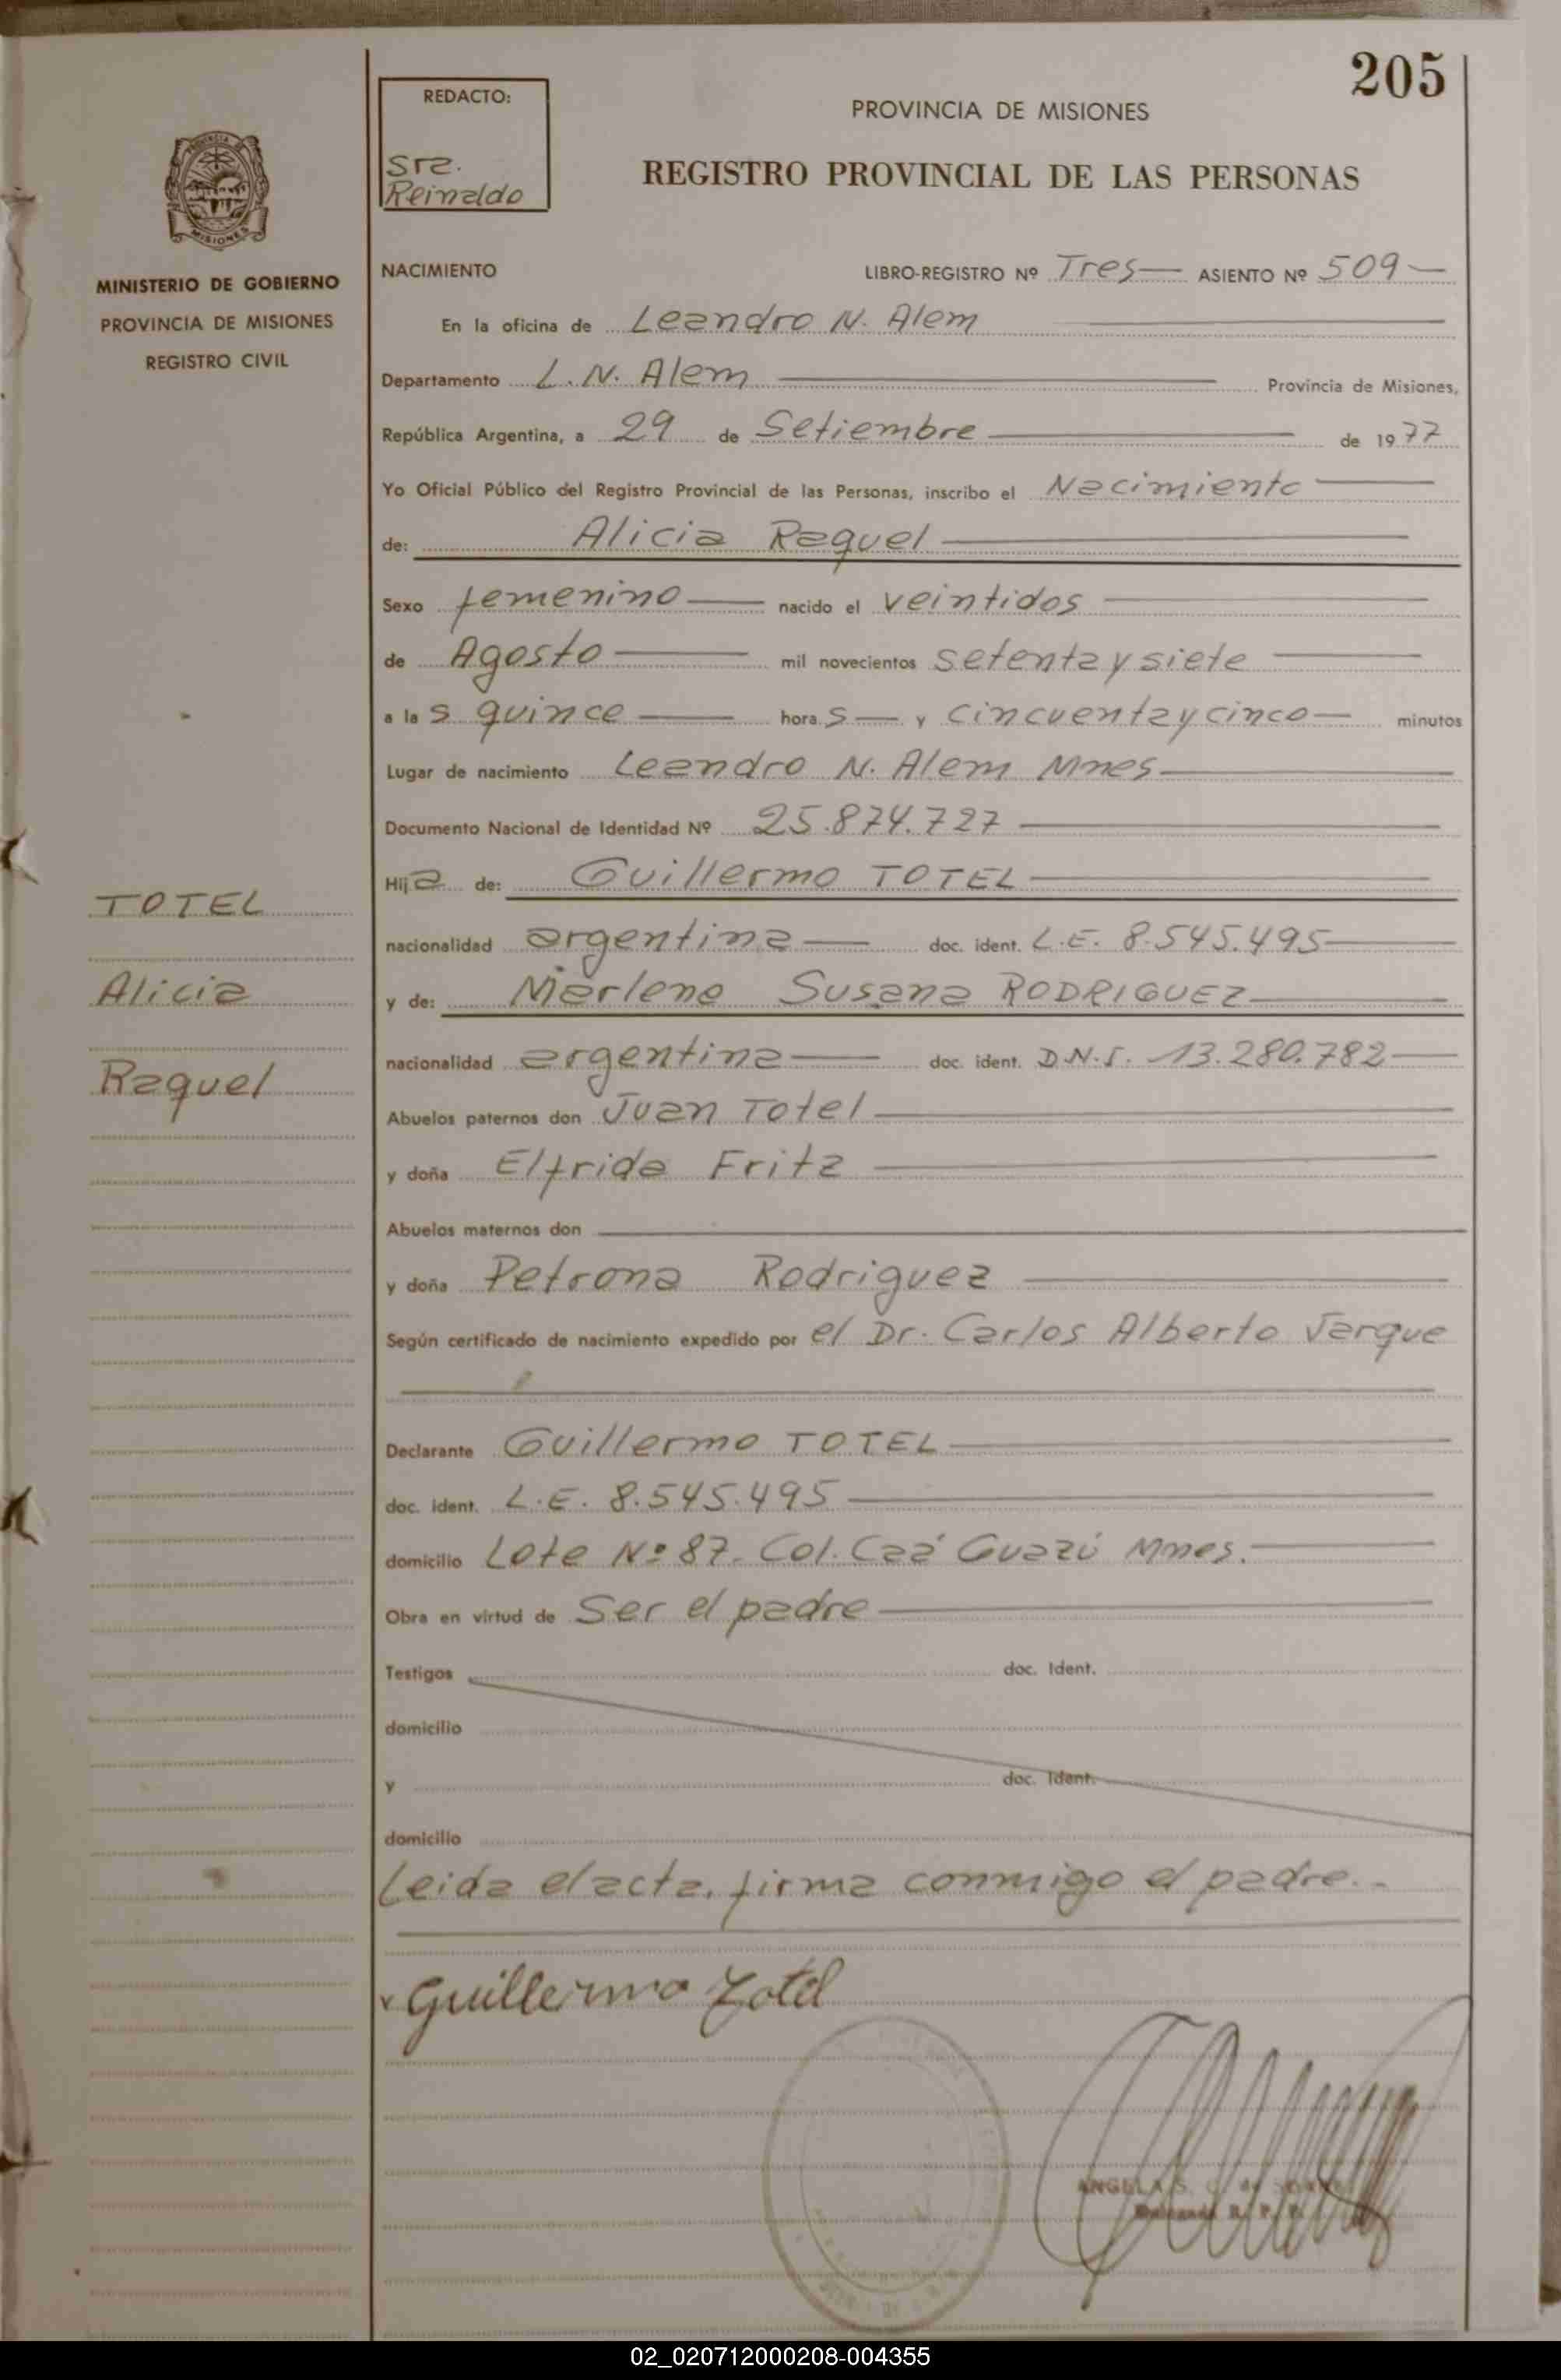 205
REDACTO:
Sra.
Reinaldo
PROVINCIA DE MISIONES
REGISTRO PROVINCIAL DE LAS PERSONAS
MISIONES
MINISTERIO DE GOBIERNO
PROVINCIA DE MISIONES
REGISTRO CIVIL
NACIMIENTO LIBRO-REGISTRO Nº Tres ASIENTO Nº 509
En la oficina de Leandro N. Alem
Departamento L. N. Alem Provincia de Misiones,
República Argentina, a 29 de Setiembre de 1977
Yo Oficial Público del Registro Provincial de las Personas, inscribo el Nacimiento
de: Alicia Raquel
Sexo femenino nacido el veintidos
de Agosto mil novecientos setenta y siete
a las quince horas y cincuenta y cinco minutos
Lugar de nacimiento Leandro N. Alem Mnes
Documento Nacional de Identidad Nº 25.874.727
Hija de: Guillermo TOTEL
nacionalidad argentina doc. ident. L.E. 8.545.495
y de: Marlene Susana RODRIGUEZ
nacionalidad argentina doc. ident. D.N.I. 13.280.782
Abuelos paternos don Juan Totel
y doña Elfrida Fritz
Abuelos maternos don
y doña Petrona Rodriguez
Según certificado de nacimiento expedido por el Dr. Carlos Alberto Jarque
Declarante Guillermo TOTEL
doc. Ident. L.E. 8.545.495
domicilio Lote Nº 87. Col. Caá Guazú Mnes.
Obra en virtud de Ser el padre
Testigos doc. Ident.
domicilio
y doc. Ident.
domicilio
Leida el acta, firma conmigo el padre.-
Guillermo Totel
TOTEL
Alicia
Raquel
ANGELA S.
02_020712000208-004355